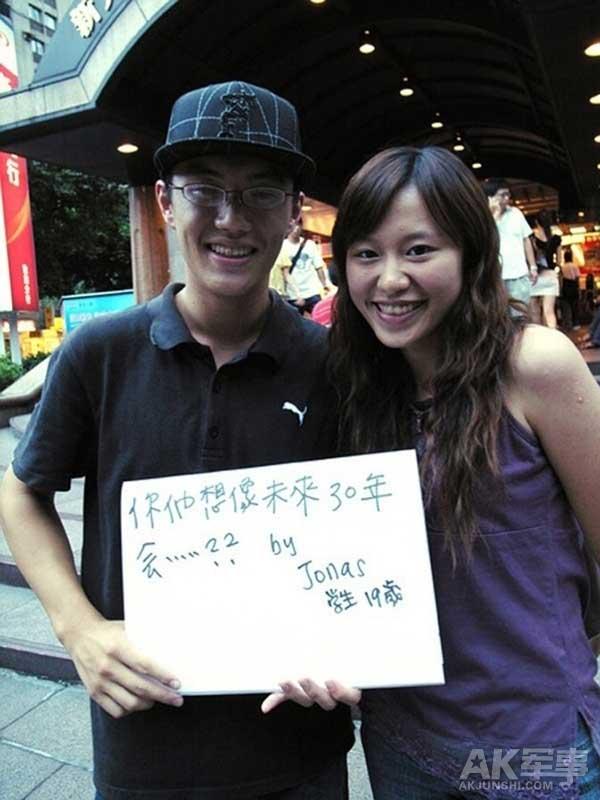 新
行
你他想像未來30年
会······?? by
Jonas
学生 19歲
AK军事
AKJUNSHI.COM